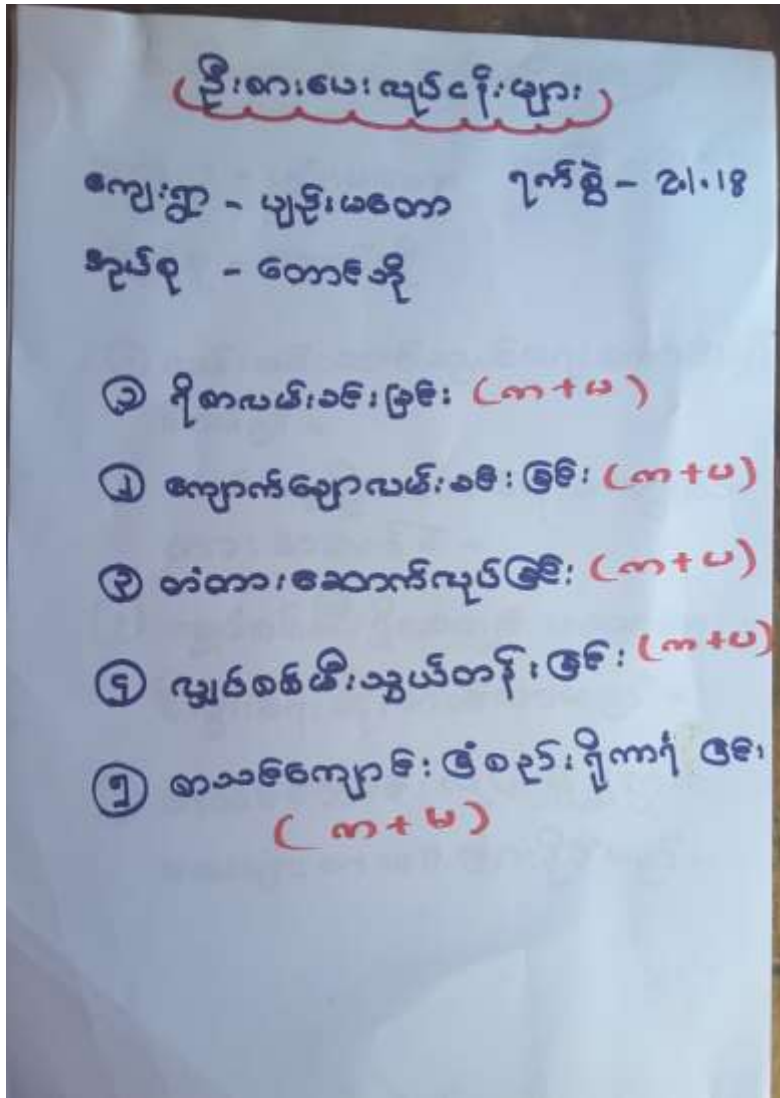 ဦးစားပေးလုပ်ငန်းများ
ကျေးရွာ - ပျဉ်းမတော ရက်စွဲ - 2.1.18
အုပ်စု - တောင်ဘို
၁ ရိုးတာလမ်းခင်းခြင်း (က+မ)
၂ ကျောက်ချောလမ်းခင်းခြင်း (က+မ)
၃ တံတားဆောက်လုပ်ခြင်း (က+မ)
၄ လျှပ်စစ်မီးသွယ်တန်းခြင်း (က+မ)
၅ စာသင်ကျောင်းခြံစည်းရိုးကာရံခြင်း
(က+မ)